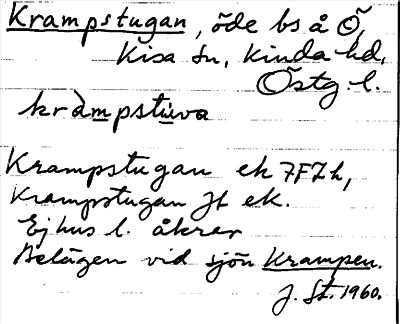 Krampstugan, öde bs å Ö,
Kisa sn, Kinda hd,
Östg. l.
kràmpstùva
Krampstugan ek 7F7h,
Krampstugan Jt ek.
Ej hus l. åkrar
Belägen vid sjön Krampen.
J. St. 1960.